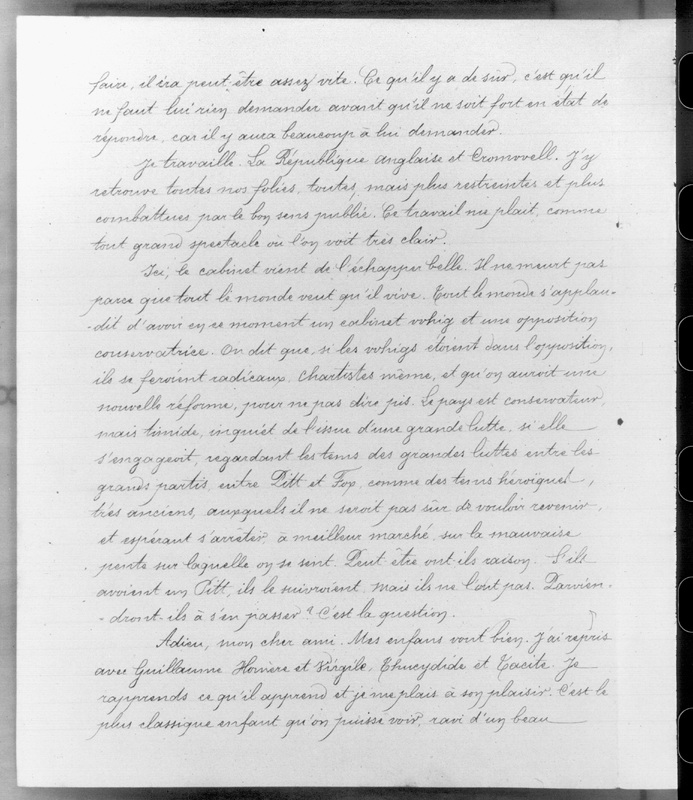 faire, il ira peut être assez vite. Ce qu'il y a de sûr, c'est qu'il
ne faut lui rien demander avant qu'il ne soit fort en état de
répondre, car il y aura beaucoup à lui demander.
Je travaille. La République anglaise et Cromwell. J'y
retrouve toutes nos folies, toutes, mais plus restreintes et plus
combattues par le bon sens public. Ce travail me plait, comme
tout grand spectacle où l'on voit très clair.
Ici, le cabinet vient de l'échapper belle. Il ne meurt pas
parce que tout le monde veut qu'il vive. Tout le monde s'applau-
-dit d'avoir en ce moment un cabinet whig et une opposition
conservatrice. On dit que, si les whigs étoient dans l'opposition,
ils se feroient radicaux, Chartistes même, et qu'on auroit une
nouvelle réforme, pour ne pas dire pis. Le pays est conservateur,
mais timide, inquiet de l'issue d'une grande lutte, si elle
s'engageoit, regardant les tems des grandes luttes entre les
grands partis, entre Pitt et Fox, comme des tems héroïques,
très anciens, auxquels il ne seroit pas sûr de vouloir revenir,
et espérant s'arrêter à meilleur marché sur la mauvaise
pente sur laquelle on se sent. Peut être ont-ils raison. S'ils
avoient un Pitt, ils le suivroient, mais ils ne l'ont pas. Parvien-
-dront-ils à s'en passer ? C'est la question.
Adieu, mon cher ami. Mes enfans vont bien. J'ai repris
avec Guillaume Homère et Virgile, Thucydide et Tacite. Je
rapprends ce qu'il apprend et je me plais à son plaisir. C'est le
plus classique enfant qu'on puisse voir, ravi d'un beau